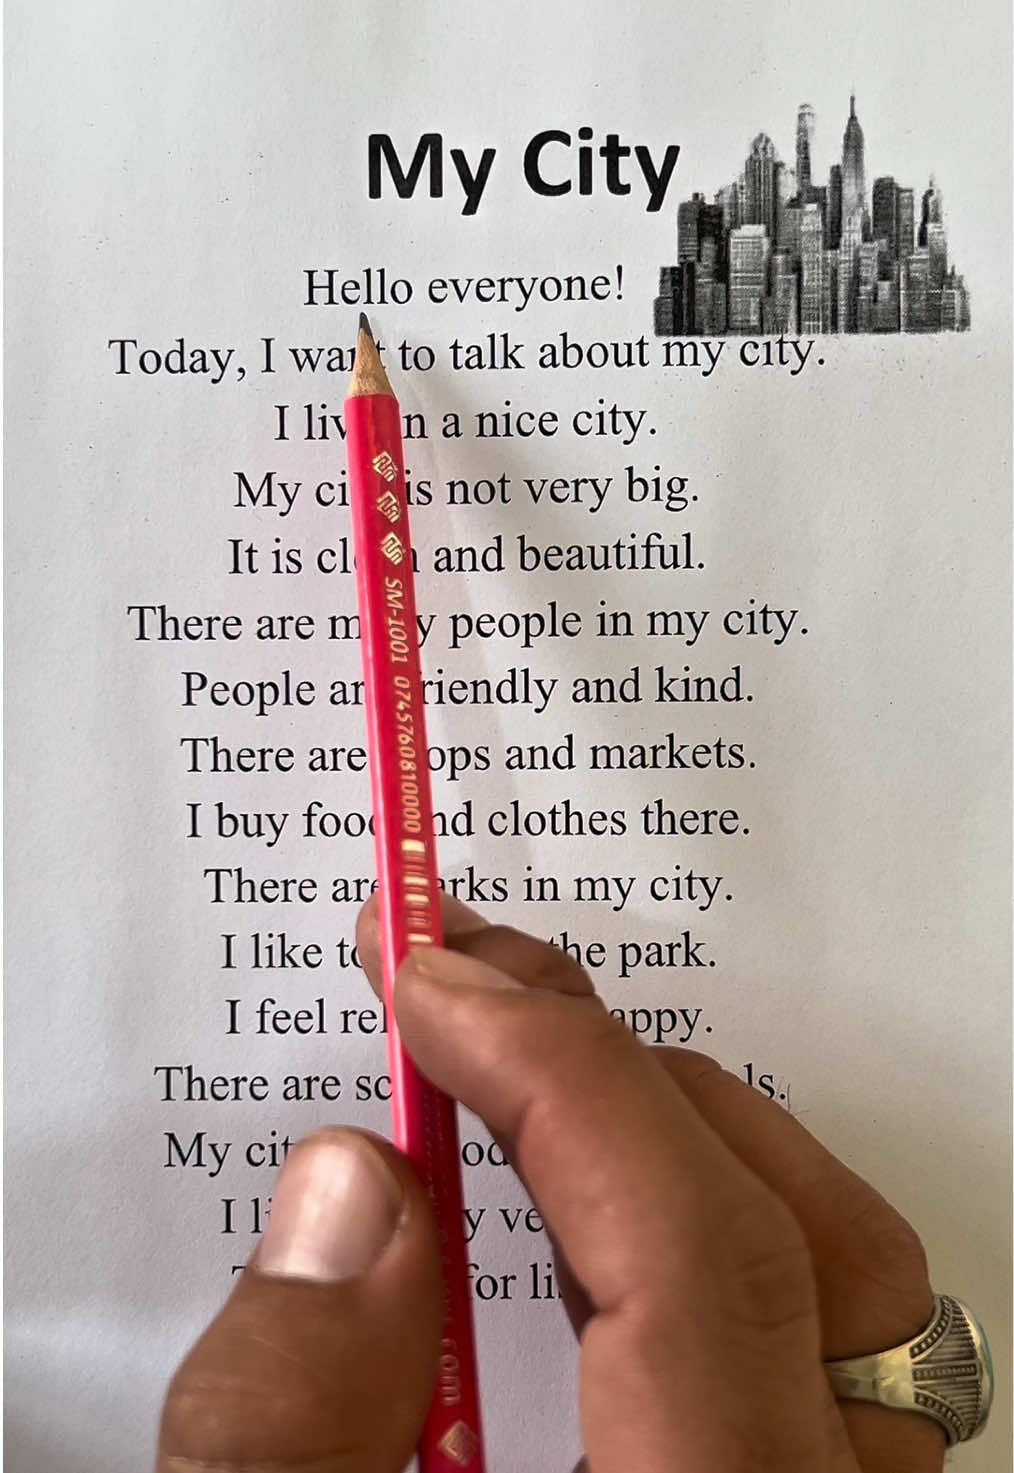 My City
Hello everyone!
Today, I want to talk about my city.
I live in a nice city.
My city is not very big.
It is clean and beautiful.
There are many people in my city.
People are friendly and kind.
There are shops and markets.
I buy food and clothes there.
There are parks in my city.
I like to the park.
I feel happy.
There are
My city
I
for
SM-1001 0745760810000